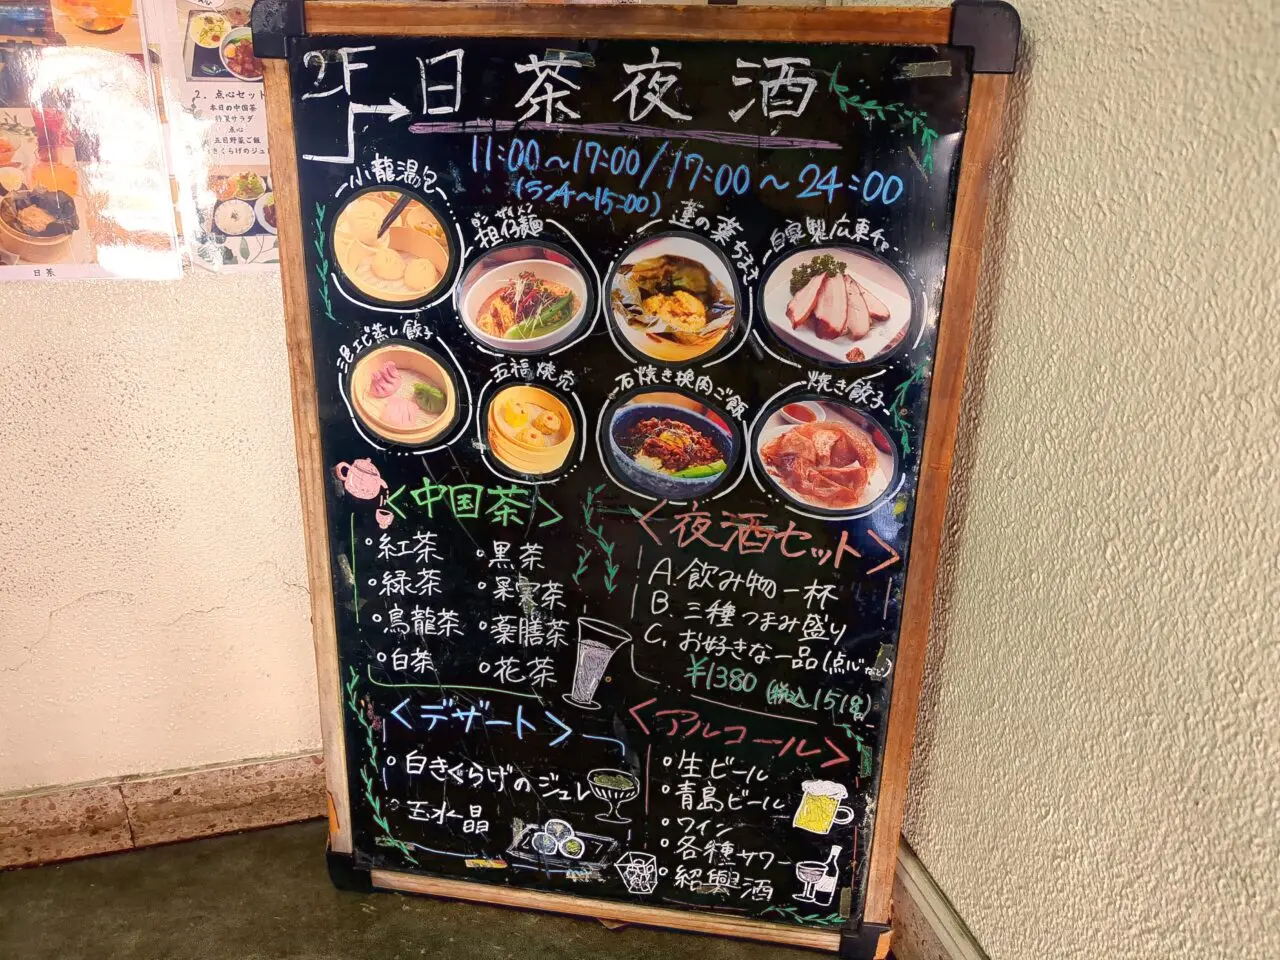 2F
日茶夜酒
11:00~17:00/17:00~24:00
(ランチ~15:00)
小龍湯包
担仔麺
蓮の葉ちまき
自家製広東チャ
海老蒸し餃子
五福焼売
石焼き挽肉ご飯
焼き餃子
<中国茶>
・紅茶
・緑茶
・烏龍茶
・白茶
・黒茶
・果実茶
・薬膳茶
・花茶
<夜酒セット>
A.飲み物一杯
B.三種つまみ盛り
C.お好きな一品(点心など)
¥1380(税込1518)
<デザート>
・白きくらげのジュレ
玉水晶
<アルコール>
・生ビール
・青島ビール
・ワイン
・各種サワー
・紹興酒
2. 点心セット
本日の中国茶
特製サラダ
点心
五目野菜ご飯
きくらげのジュ
日茶